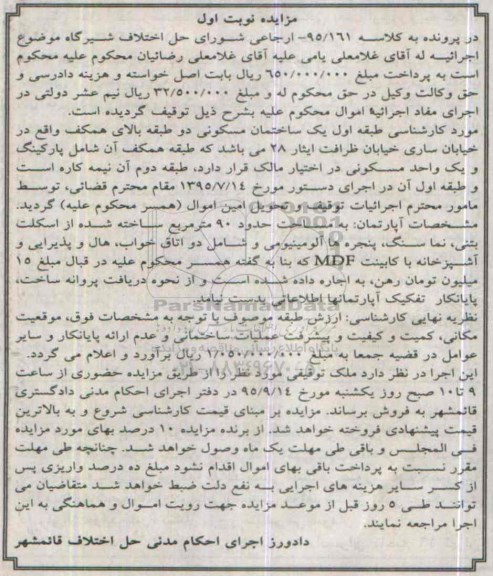 مزایده نوبت اول
در پرونده به کلاسه ۹۵/۱۶۱- ارجاعی شورای حل اختلاف شیرگاه موضوع
اجرائیه له آقای غلامعلی یامی علیه آقای غلامعلی رضائیان محکوم علیه محکوم
است به پرداخت مبلغ ۶۵۰/۰۰۰/۰۰۰ ریال بابت اصل خواسته و هزینه دادرسی و
حق وکالت وکیل در حق محکوم له و مبلغ ۳۲/۵۰۰/۰۰۰ ریال نیم عشر دولتی در
اجرای مفاد اجرائیه اموال محکوم علیه بشرح ذیل توقیف گردیده است.
مورد کارشناسی طبقه اول یک ساختمان مسکونی دو طبقه بالای همکف واقع در
خیابان ساری خیابان ظرافت ایثار ۲۸ می باشد که طبقه همکف آن شامل پارکینگ
و یک واحد مسکونی در اختیار مالک قرار دارد، طبقه دوم آن نیمه کاره است
و طبقه اول آن در اجرای دستور مورخ ۱۳۹۵/۷/۱۴ مقام محترم قضائی، توسط
مامور محترم اجرائیات توقیف و تحویل امین اموال (همسر محکوم علیه) گردید.
مشخصات آپارتمان: به مساحت حدود ۹۰ مترمربع ساخته شده از اسکلت
بتنی، نما سنگ، پنجره ها آلومینیومی و شامل دو اتاق خواب، هال و پذیرایی و
آشپزخانه با کابینت MDF که بنا به گفته همسر محکوم علیه در قبال مبلغ ۱۵
میلیون تومان رهن، به اجاره داده شده است و از نحوه دریافت پروانه ساخت،
پایانکار تفکیک آپارتمانها اطلاعاتی بدست نیامد.
نظریه نهایی کارشناسی: ارزش طبقه موصوف با توجه به مشخصات فوق، موقعیت
مکانی، کمیت و کیفیت و پیشرفت عملیات ساختمانی و عدم ارائه پایانکار و سایر
عوامل در قضیه جمعا به مبلغ ۱/۰۵۰/۰۰۰/۰۰۰ ریال برآورد و اعلام می گردد.
این اجرا در نظر دارد ملک توقیفی مورد نظر را از طریق مزایده حضوری از ساعت
۹ تا ۱۰ صبح روز یکشنبه مورخ ۹۵/۹/۱۴ در دفتر اجرای احکام مدنی دادگستری
قائمشهر به فروش برساند. مزایده بر مبنای قیمت کارشناسی شروع و به بالاترین
قیمت پیشنهادی فروخته خواهد شد. از برنده مزایده ۱۰ درصد بهای مورد مزایده
فی المجلس و باقی طی مهلت یک ماه وصول خواهد شد. چنانچه طی مهلت
مقرر نسبت به پرداخت باقی بهای اموال اقدام نشود مبلغ ده درصد واریزی پس
از کسر سایر هزینه های اجرایی به نفع دولت ضبط خواهد شد متقاضیان می
توانند طی ۵ روز قبل از موعد مزایده جهت رویت اموال و هماهنگی به این
اجرا مراجعه نمایند.
دادورز اجرای احکام مدنی حل اختلاف قائمشهر
ParsNamadData